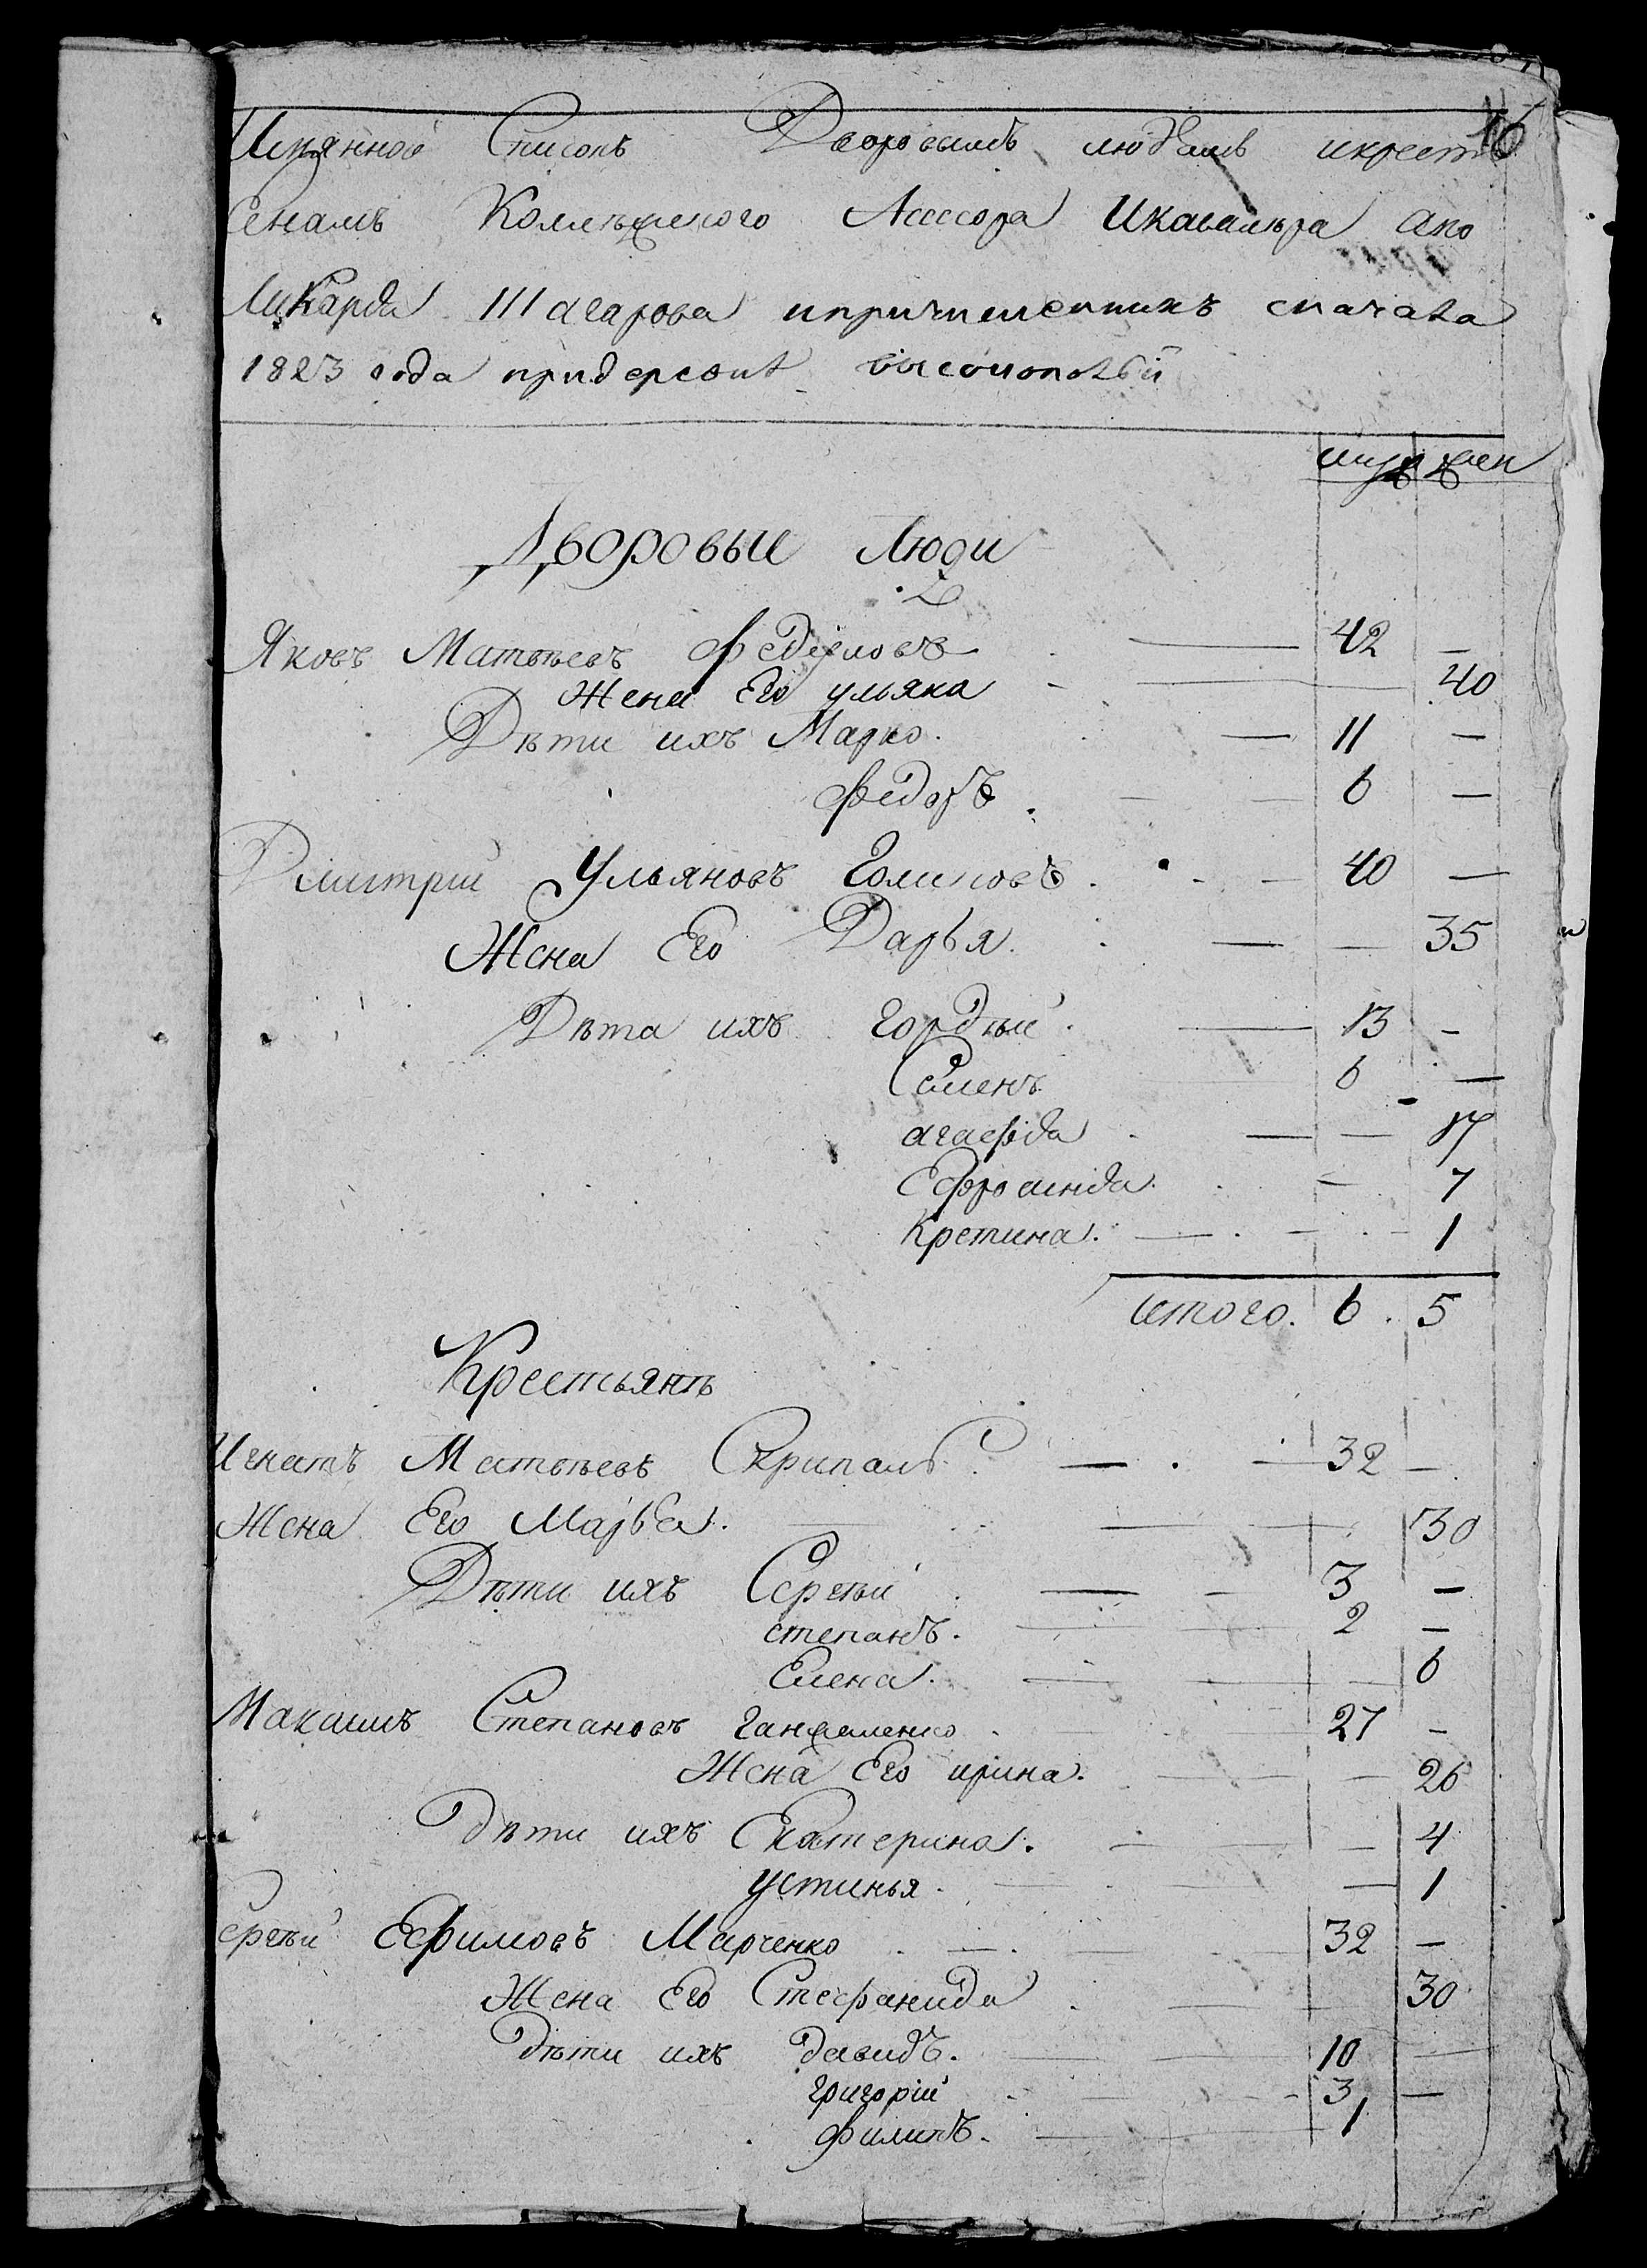 16
Имянной Списокъ Дворовымъ людямъ икрестъ
сенамъ Колежского Асессора Икавалера
Шагарова сначала
1823 года придеревнѣ
муж жен
Дворовые Люди
Яковъ Матвѣевъ — 42 —
Жена Его ульяна — 40
Дѣти ихъ Марко — 11 —
Федоръ — 6 —
Дмитрий Ульяновъ Голиковъ — 40 —
Жена Его Дарья — — 35
Дѣти ихъ Гордѣй — 13 —
Семенъ 6 —
агафѣа — — 17
Ефросинѣа — 7
Крестина — 1
итого. 6. 5
Крестьянѣ
Игнатъ Матвѣевъ Скрипалъ — 32 —
Жена Его Марья — 30
Дѣти ихъ Сергѣй — 3 —
степанъ — 2 —
Елена — 6
Максимъ Степановъ — 27 —
Жена Его ирина — 26
Дѣти ихъ Екатерина — 4
устинья — 1
сергѣй Ефимовъ Марченко — 32 —
Жена Его Стефанида — 30
Дѣти ихъ давидъ — 10 —
григорій — 3 —
филипъ — 1